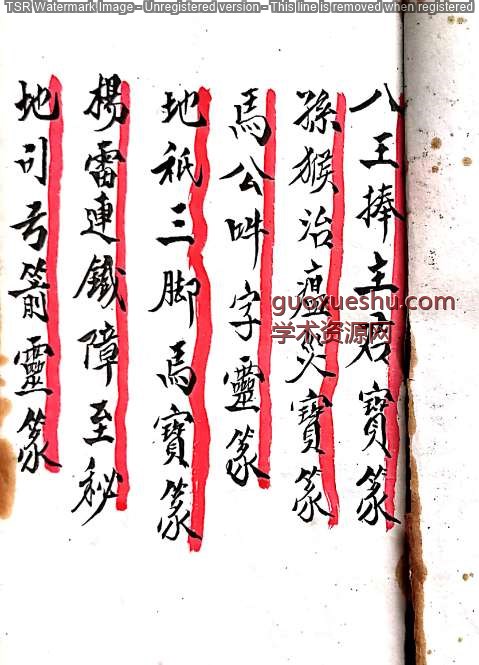 TSR Watermark Image - Unregistered version - This line is removed when registered
八王捧主君寳篆
孫猴治瘟災寳篆
馬公吽字靈篆
地祇三脚馬寳篆
楊雷連鐵障至秘
地司弓箭靈篆
guoxueshu.com
学术资源网